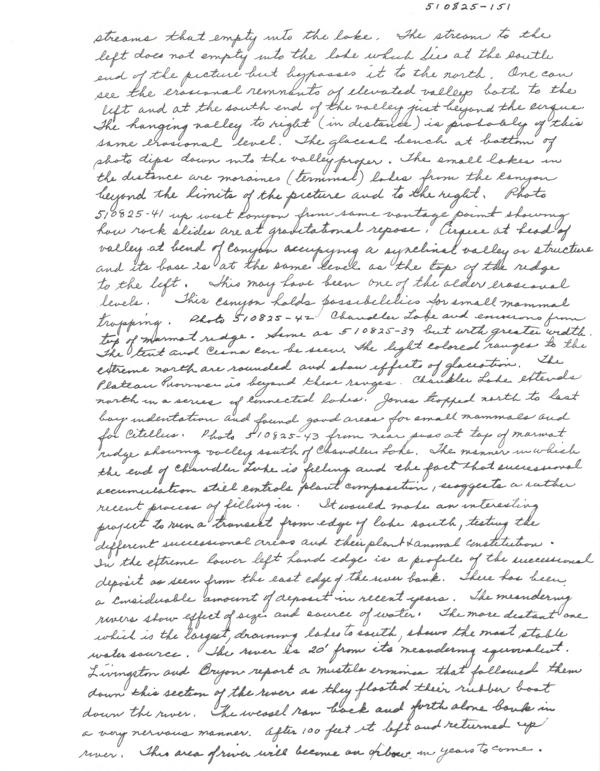 510825-151
streams that empty into the lake. The stream to the
left does not empty into the lake which lies at the south
end of the picture but bypasses it to the north. One can
see the erosional remnants of elevated valleys both to the
left and at the south end of the valley just beyond the cirque.
The hanging valley to right (in distance) is probably of this
same erosional level. The glacial bench at bottom of
photo dips down into the valley proper. The small lakes in
the distance are moraines (terminal) lakes from the canyon
beyond the limits of the picture and to the right. Photo
510825-41 up west canyon from same vantage point showing
how rock slides are at gravitational repose. Cirque at head of
valley at bend of Canyon occupying a synclinal valley or structure
and its base is at the same level as the top of the ridge
to the left. This may have been one of the older erosional
levels. This canyon holds possibilities for small mammal
trapping. Photo 510825-42 Chandler Lake and environs from
top of marmot ridge. Same as 510825-39 but with greater width.
The tent and Cesna can be seen. The light colored ranges to the
extreme north are rounded and show effects of glaciation. The
Plateau Province is beyond these ranges. Chandler Lake extends
north in a series of connected lakes. Jones stopped north to last
bay indentation and found good areas for small mammals and
for Citellus. Photo 510825-43 from near at top of marmot
ridge showing valley south of Chandler Lake. The manner in which
the end of Chandler Lake is filling and the fact that successional
accumulation still controls plant composition, suggests a rather
recent process of filling in. It would make an interesting
project to run a transect from edge of lake south, testing the
different successional areas and their plant & animal constitution.
In the extreme lower left hand edge is a profile of the successional
deposit as seen from the east edge of the river bank. There has been
a considerable amount of deposit in recent years. The meandering
rivers show effect of size and source of water. The more distant one
which is the largest, draining lakes to south, shows the most stable
water source. The river is 20' from its meandering equivalent.
Livingston and Bryon report a mustela erminea that followed them
down this section of the river as they floated their rubber boat
down the river. The weasel ran back and forth along bank in
a very nervous manner. After 100 feet it left and returned up
river. This area of river will become an oxbow in years to come.